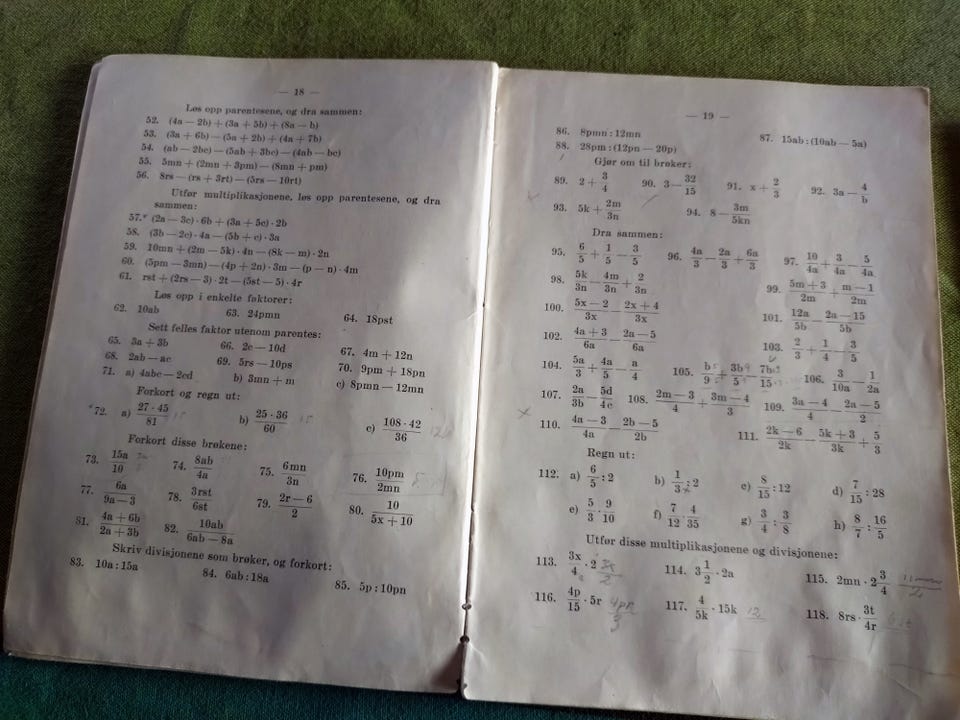 — 18 —
Løs opp parentesene, og dra sammen:
52. (4a — 2b) + (3a + 5b) + (8a — b)
53. (3a + 6b) — (5a + 2b) + (4a + 7b)
54. (ab — 2bc) — (5ab + 3bc) — (4ab — bc)
55. 5mn + (2mn + 3pm) — (8mn + pm)
56. 8rs — (rs + 3rt) — (5rs — 10rt)
Utfør multiplikasjonene, løs opp parentesene, og dra
sammen:
57. (2a — 3c) · 6b + (3a + 5c) · 2b
58. (3b — 2c) · 4a — (5b + c) · 3a
59. 10mn + (2m — 5k) · 4n — (8k — m) · 2n
60. (5pm — 3mn) — (4p + 2n) · 3m — (p — n) · 4m
61. rst + (2rs — 3) · 2t — (5st — 5) · 4r
Løs opp i enkelte faktorer:
62. 10ab 63. 24pmn 64. 18pst
Sett felles faktor utenom parentes:
65. 3a + 3b 66. 2c — 10d 67. 4m + 12n
68. 2ab — ac 69. 5rs — 10ps 70. 9pm + 18pn
71. a) 4abc — 2cd b) 3mn + m c) 8pmn — 12mn
Forkort og regn ut:
72. a) 27 · 45 / 81 b) 25 · 36 / 60 c) 108 · 42 / 36
Forkort disse brøkene:
73. 15a / 10 74. 8ab / 4a 75. 6mn / 3n 76. 10pm / 2mn
77. 6a / 9a — 3 78. 3rst / 6st 79. 2r — 6 / 2 80. 10 / 5x + 10
81. 4a + 6b / 2a + 3b 82. 10ab / 6ab — 8a
Skriv divisjonene som brøker, og forkort:
83. 10a : 15a 84. 6ab : 18a 85. 5p : 10pn
— 19 —
86. 8pmn : 12mn 87. 15ab : (10ab — 5a)
88. 28pm : (12pn — 20p)
Gjør om til brøker:
89. 2 + 3/4 90. 3 — 32/15 91. x + 2/3 92. 3a — 4/b
93. 5k + 2m/3n 94. 8 — 3m/5kn
Dra sammen:
95. 6/5 + 1/5 — 3/5 96. 4a/3 — 2a/3 + 6a/3 97. 10/4a + 3/4a — 5/4a
98. 5k/3n — 4m/3n + 2/3n 99. 5m + 3 / 2m + m — 1 / 2m
100. 5x — 2 / 3x — 2x + 4 / 3x 101. 12a / 5b — 2a — 15 / 5b
102. 4a + 3 / 6a — 2a — 5 / 6a 103. 2/3 + 1/4 — 3/5
104. 5a/3 + 4a/5 — a/4 105. b/9 + 3b/5 — 7b/15 106. 3/10a — 1/2a
107. 2a/3b — 5d/4c 108. 2m — 3 / 4 + 3m — 4 / 3 109. 3a — 4 / 4 — 2a — 5 / 2
110. 4a — 3 / 4a — 2b — 5 / 2b 111. 2k — 6 / 2k — 5k + 3 / 3k + 5/3
Regn ut:
112. a) 6/5 : 2 b) 1/3 : 2 c) 8/15 : 12 d) 7/15 : 28
e) 5/3 · 9/10 f) 7/12 · 4/35 g) 3/4 : 3/8 h) 8/7 : 16/5
Utfør disse multiplikasjonene og divisjonene:
113. 3x/4 · 2 114. 3 1/2 · 2a 115. 2mn · 2 3/4
116. 4p/15 · 5r 117. 4/5k · 15k 12 118. 8rs · 3t/4r